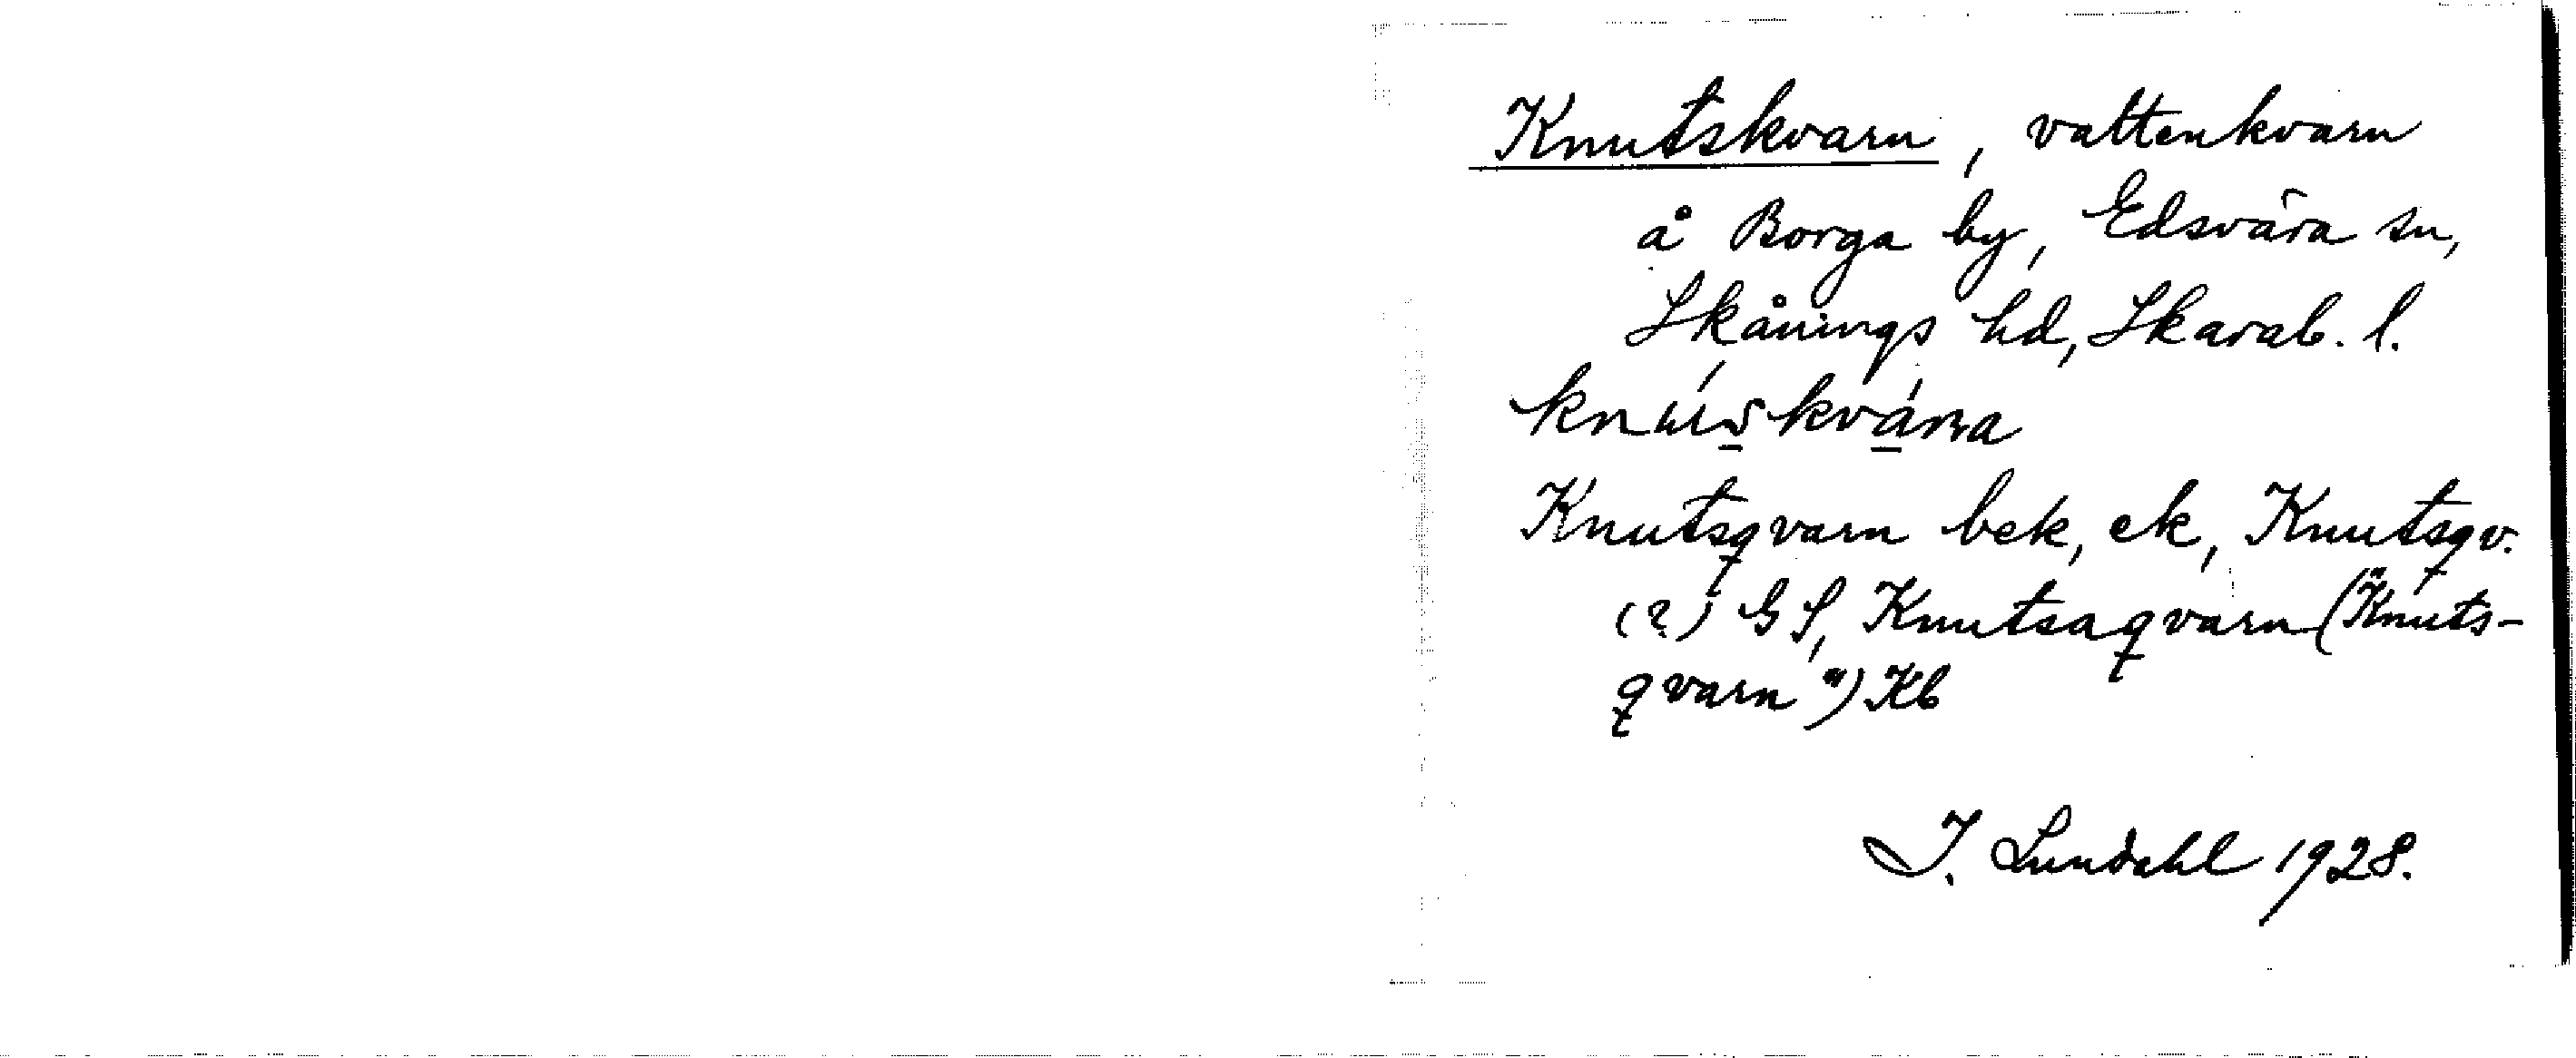 Knutskvarn, vattenkvarn
å Borga by, Edsvära sn,
Skånings hd, Skarab. l.
Knutsqvarn bek, ek, Knutsqv.
(?) GS, Knutsaqvarn ("Knuts-
qvarn") Kb
I. Lundahl 1928.